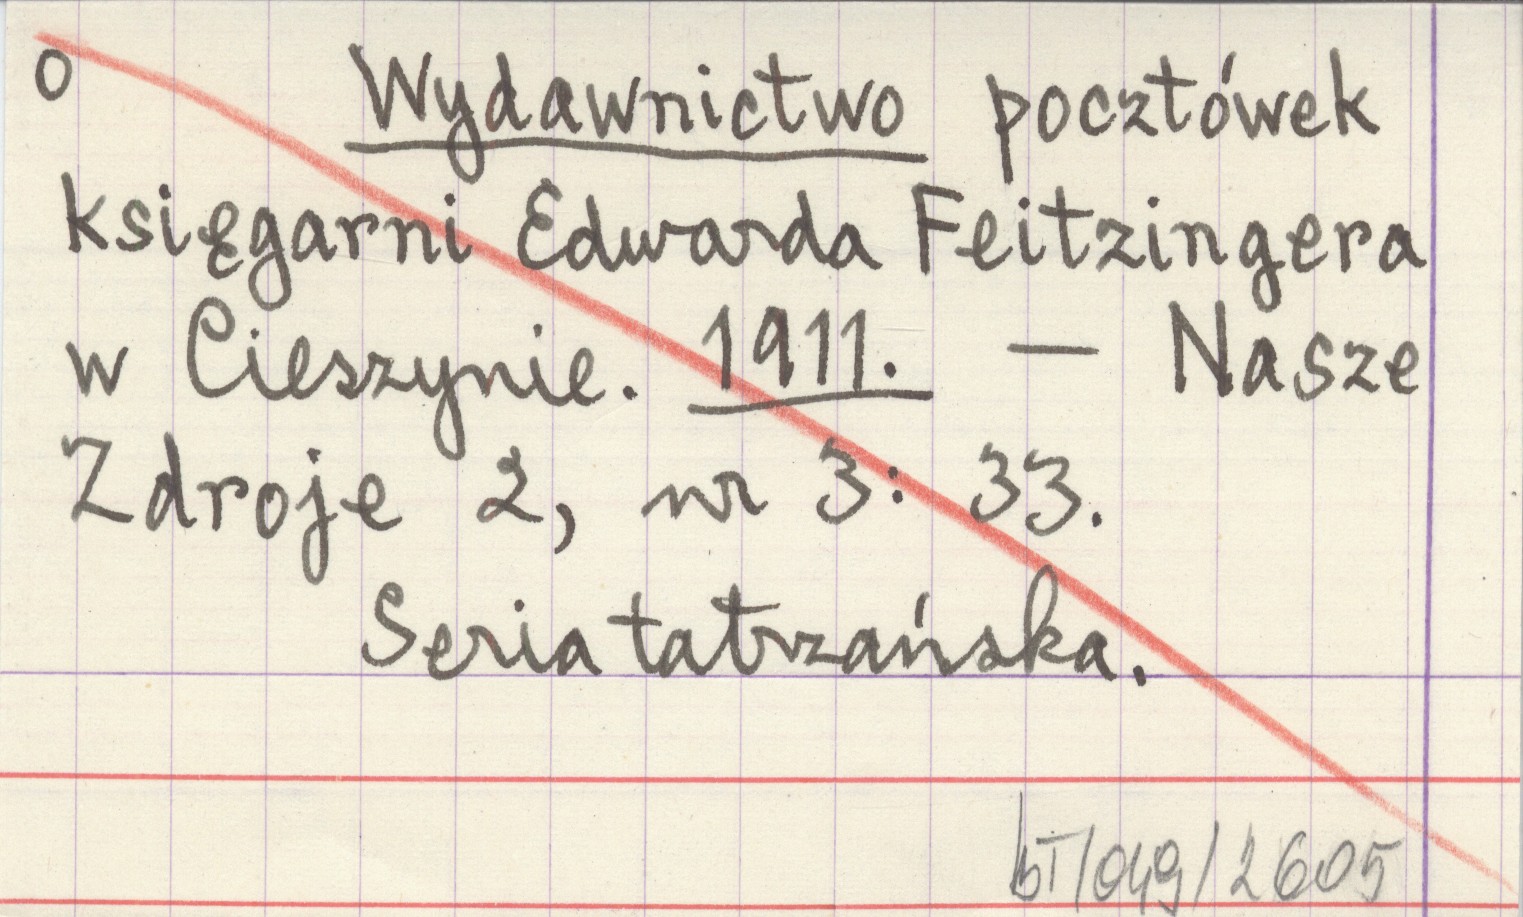 o Wydawnictwo pocztówek
księgarni Edwarda Feitzingera
w Cieszynie. 1911. — Nasze
Zdroje 2, nr 3: 33.
Seria tatrzańska.
bT/049/2605